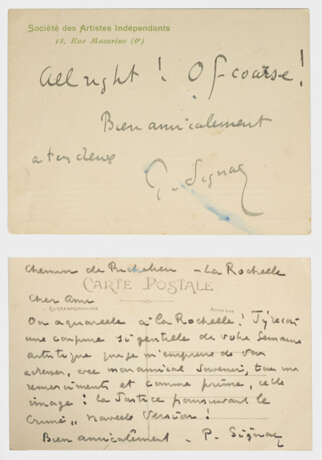 Société des Artistes Indépendants
18, Rue Mazarine (6e)
All right ! Of coarse !
Bien amicalement
a tous deux
P. Signac
Chemin de Richelieu - La Rochelle
CARTE POSTALE
Cher Ami
On aquarelle à La Rochelle ! J'y reçois
une coupure si gentille de votre Semaine
artistique que je m'empresse de vous
adresser, avec mon amical souvenir, tous mes
remerciments et comme prime, cette
image : la Justice poursuivant le
Crime, nouvelle version !
Bien amicalement - P. Signac